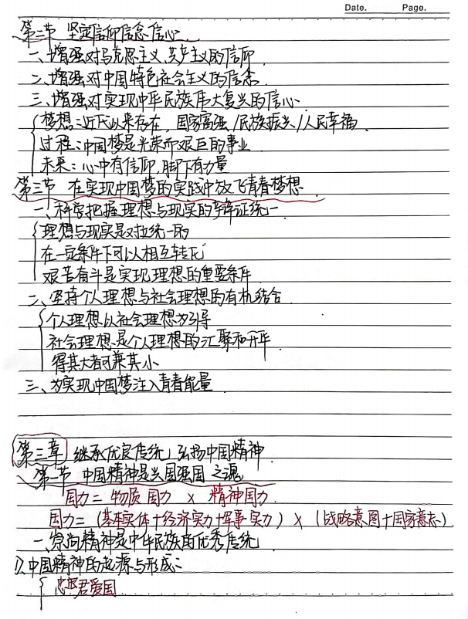 Date. Page.
第二节 坚定信仰信念信心
一、增强对马克思主义、共产主义的信仰
二、增强对中国特色社会主义的信念
三、增强对实现中华民族伟大复兴的信心
梦想:近代以来存在,国家富强/民族振兴/人民幸福
过程:中国梦是光荣而艰巨的事业
未来:心中有信仰,脚下有力量
第三节 在实现中国梦的实践中放飞青春梦想
一、科学把握理想与现实的辩证统一
理想与现实是对立统一的
在一定条件下可以相互转化
艰苦奋斗是实现理想的重要条件
二、坚持个人理想与社会理想的有机结合
个人理想以社会理想为引导
社会理想是个人理想的汇聚和升华
得其大者可兼其小
三、为实现中国梦注入青春能量
第三章 继承优良传统 弘扬中国精神
第一节 中国精神是兴国强国之魂
国力=物质国力×精神国力
国力=(基本实体+经济实力+军事实力)×(战略意图+国家意志)
一、崇尚精神是中华民族的优秀传统
1).中国精神的起源与形成:
忠君爱国